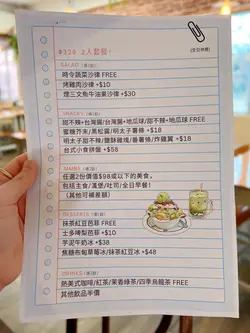 $328 2人套餐!
(全日供應)
SALAD (選1款)
時令蔬菜沙律 FREE
烤雞肉沙律 +$10
煙三文魚牛油果沙律 +$30
SNACKS (選1款)
甜不辣+台灣腸/台灣腸+地瓜球/甜不辣+地瓜球 FREE
蜜糖芥末/黑松露/明太子薯條 +$18
明太子甜不辣/鹽酥雞塊/番薯條/炸雞翼 +$18
台式小食拼盤 +$58
MAINS (選2款)
任選2份價值$98或以下的美食,
包括主食/漢堡/吐司/全日早餐!
(其他可補差額)
DESSERTS (選1款)
抹茶紅豆芭菲 FREE
士多啤梨芭菲 +$10
芋泥牛奶冰 +$38
焦糖布甸草莓冰/抹茶紅豆冰 +$48
DRINKS (選2款)
熱美式咖啡/紅茶/茉香綠茶/四季烏龍茶 FREE
其他飲品半價